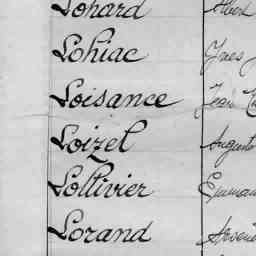 Lohard Albert
Lohiac Yves
Loisance Jean
Loizel Auguste
Lollivier Emman
Lorand Arsène